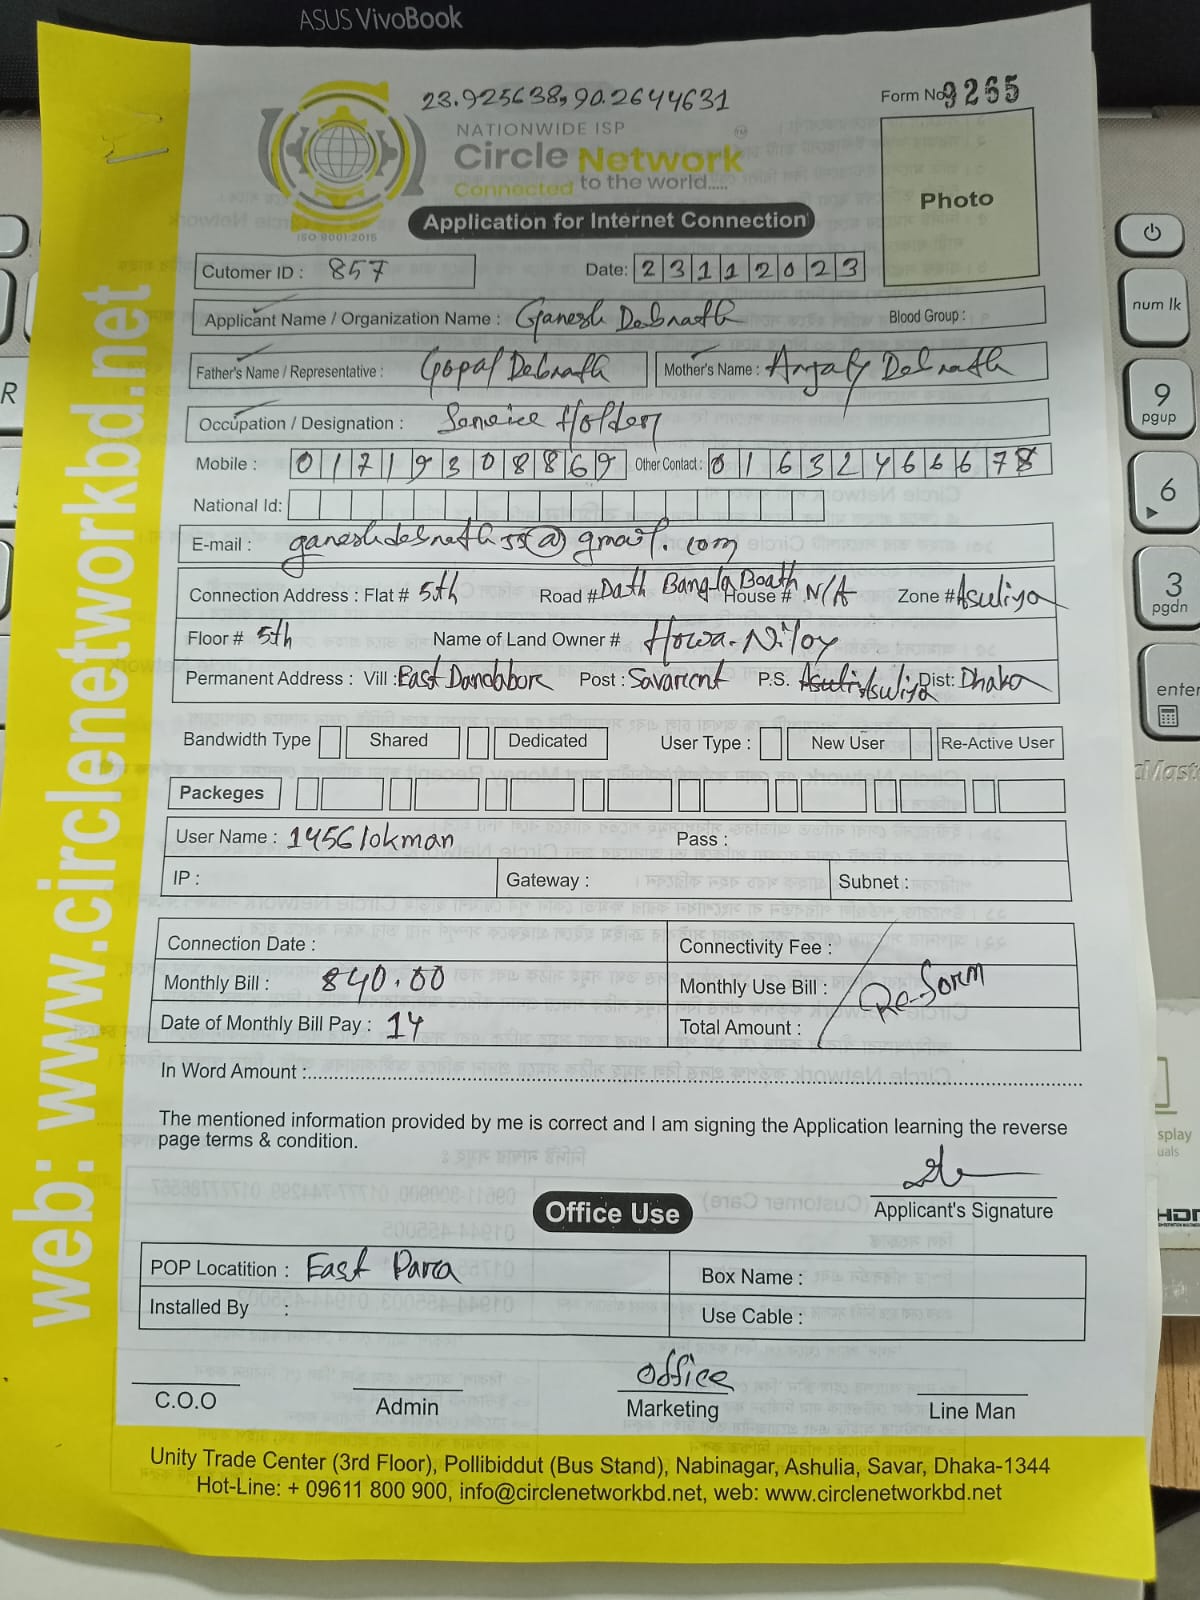 ASUS VivoBook
23.925638, 90.2644631
Form No 9265
NATIONWIDE ISP
Circle Network
Connected to the world.....
ISO 9001:2015
Application for Internet Connection
Photo
Cutomer ID : 857
Date: 23112023
Applicant Name / Organization Name : Ganesh Debnath
Blood Group :
Father's Name / Representative : Gopal Debnath
Mother's Name : Anjaly Debnath
Occupation / Designation : Service Holder
Mobile : 01719308869 Other Contact :
National Id:
E-mail : ganeshdebnath55@gmail.com
Connection Address : Flat # 5th Road # Bangla House # N/A Zone # Asuliya
Floor # 5th Name of Land Owner # Howa-Niloy
Permanent Address : Vill : East Dandabore Post : Savarcent P.S. Asuliya Dist: Dhaka
Bandwidth Type Shared Dedicated User Type : New User Re-Active User
Packeges
User Name : 1456lokman Pass :
IP : Gateway : Subnet :
Connection Date : Connectivity Fee :
Monthly Bill : 840.00 Monthly Use Bill :
Re-Form
Date of Monthly Bill Pay : 14 Total Amount :
In Word Amount :
The mentioned information provided by me is correct and I am signing the Application learning the reverse
page terms & condition.
Applicant's Signature
Office Use
POP Locatition : East Para Box Name :
Installed By : Use Cable :
office
C.O.O Admin Marketing Line Man
Unity Trade Center (3rd Floor), Pollibiddut (Bus Stand), Nabinagar, Ashulia, Savar, Dhaka-1344
Hot-Line: + 09611 800 900, info@circlenetworkbd.net, web: www.circlenetworkbd.net
web: www.circlenetworkbd.net
num lk
9
pgup
6
3
pgdn
enter